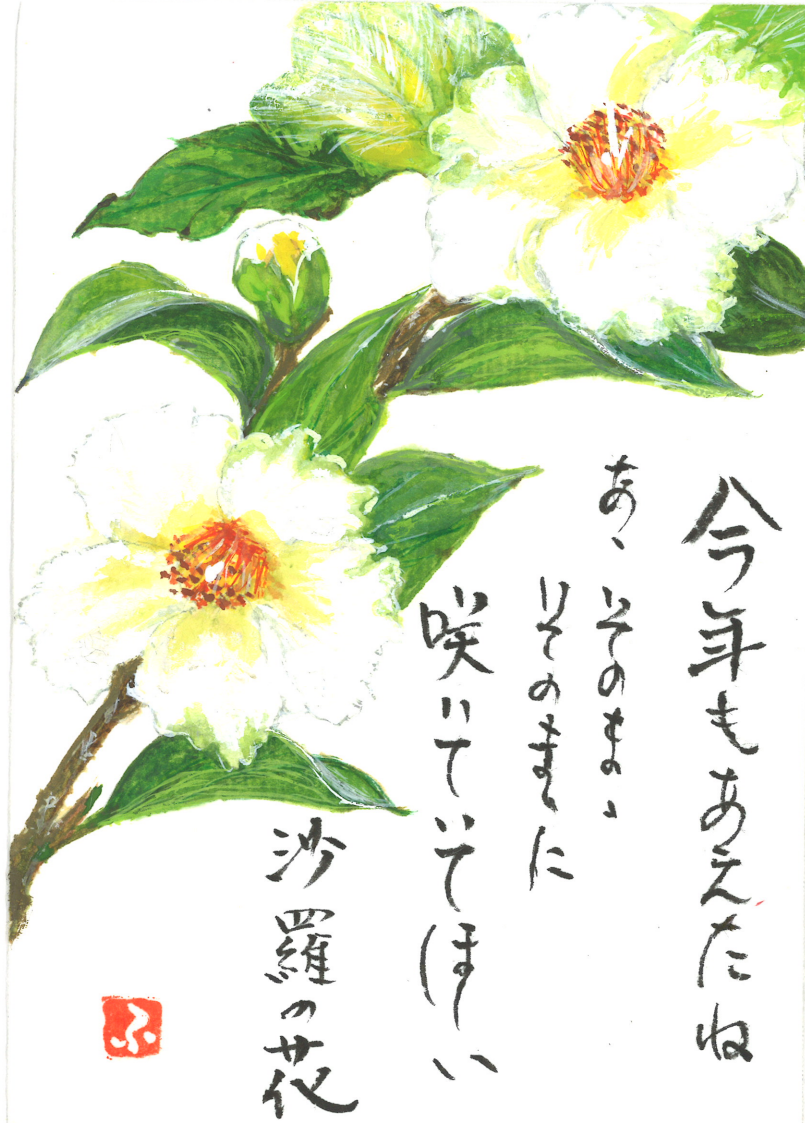 今年もあえたね
あゝそのまゝ
そのまゝに
咲いていてほしい
沙羅の花
ふ